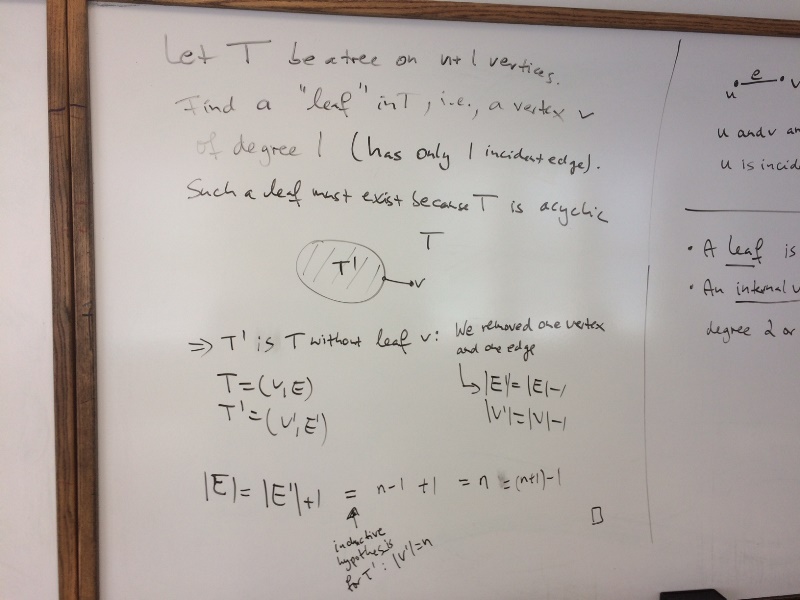 Let T be a tree on n+1 vertices.
Find a "leaf" in T, i.e., a vertex v
of degree 1 (has only 1 incident edge).
Such a leaf must exist because T is acyclic
T
T'
v
⇒ T' is T without leaf v:
We removed one vertex
and one edge
T=(V,E)
T'=(V',E')
|E'|=|E|-1
|V'|=|V|-1
|E|=|E'|+1 = n-1 +1 = n = (n+1)-1
inductive
hypothesis
for T': |V'|=n
□
e
u v
u and v
u is
• A leaf is
• An internal
degree 2 or